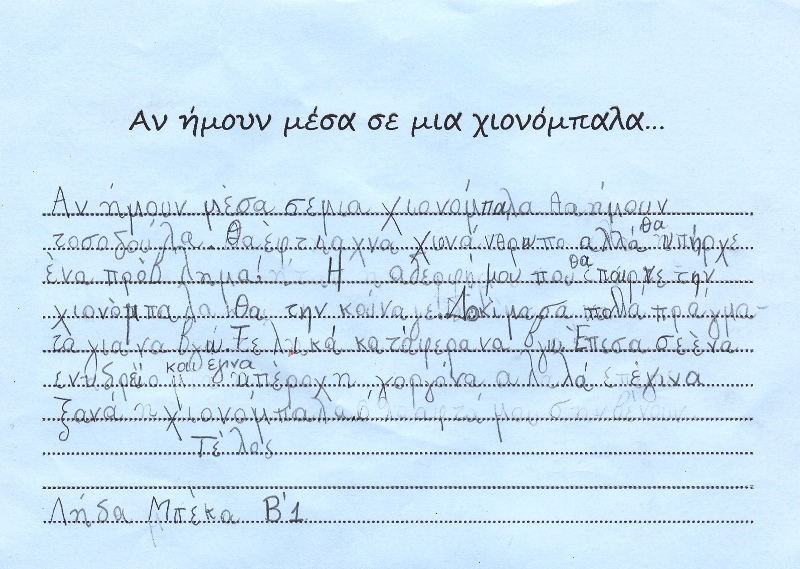 Αν ήμουν μέσα σε μια χιονόμπαλα...
Αν ήμουν μὲσα σεμια χιονόμπαλα θα ήμουν
τοσοδούλα. Θα ὲφτιαχνα χιονάνθρωπο αλλά θα υπήρχε
ὲνα πρὸβλημα! Η αδερφή μου που θα ἐπαιρνε την
χιονὸμπαλα θα την κούναγε. Δοκίμασα πολλα πράγμα-
τα για να βγω. Τελικά κατάφερα να βγω. Ἐπεσα σε ὲνα
ενυδρείο και ἐγινα υπὲροχη γοργόνα αλλά ἐγινα
ξανά η χιονόμπαλα
Τέλος
Λήδα Μπὲκα Β'1